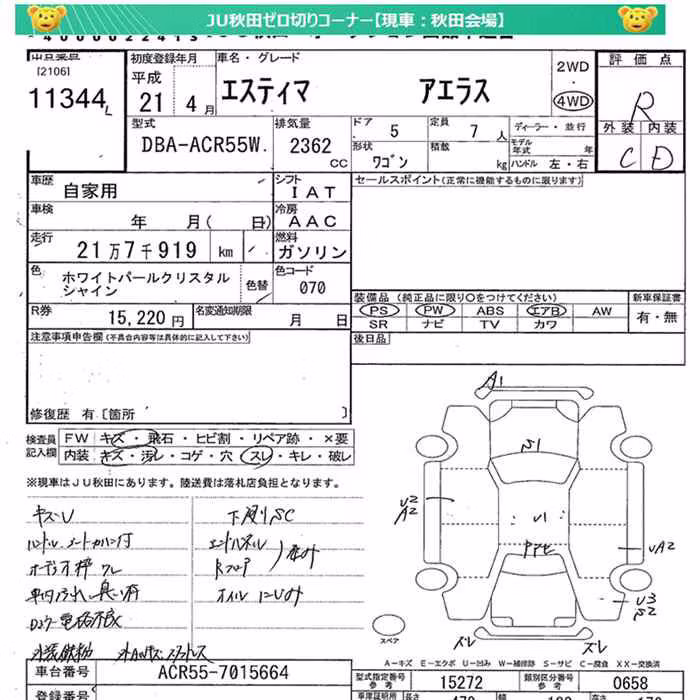 JU秋田ゼロ切りコーナー【現車：秋田会場】
[2106]
11344 L
初度登録年月
平成
21 4月
車名・グレード
エスティマ アエラス
2WD
・
4WD
評価点
R
外装 内装
C D
型式
DBA-ACR55W
排気量
2362 cc
ドア 5
定員 7人
ディーラー・並行
形状 ワゴン
積載 kg
モデル年式 年
ハンドル 左・右
車歴 自家用
シフト IAT
セールスポイント(正常に機能するものに限ります)
車検 年 月( 日)
冷房 AAC
走行 21万7千919 km
燃料 ガソリン
色 ホワイトパールクリスタルシャイン
色替
色コード 070
装備品 (純正品に限り○をつけてください)
新車保証書
PS PW ABS エアB AW
有・無
SR ナビ TV カワ
R券 15,220円
名変通知期限 月 日
後日品
注意事項申告欄(不具合内容等は具体的に記入して下さい)
修復歴 有 [箇所 ]
検査員記入欄
FW キズ・飛石・ヒビ割・リペア跡・×要
内装 キズ・汚レ・コゲ・穴・スレ・キレ・破レ
※現車はJU秋田にあります。陸送費は落札店負担となります。
キズU
下廻りSC
A1
S1
U2
A2
U1
UA2
U3
S2
ズレ
ズレ
スペア
A−キズ E−エクボ U−凹み W−補修跡 S−サビ C−腐食 XX−交換済
車台番号 ACR55-7015664
型式指定番号 参考 15272
類別区分番号 参考 0658
登録番号
車庫証明用
長さ